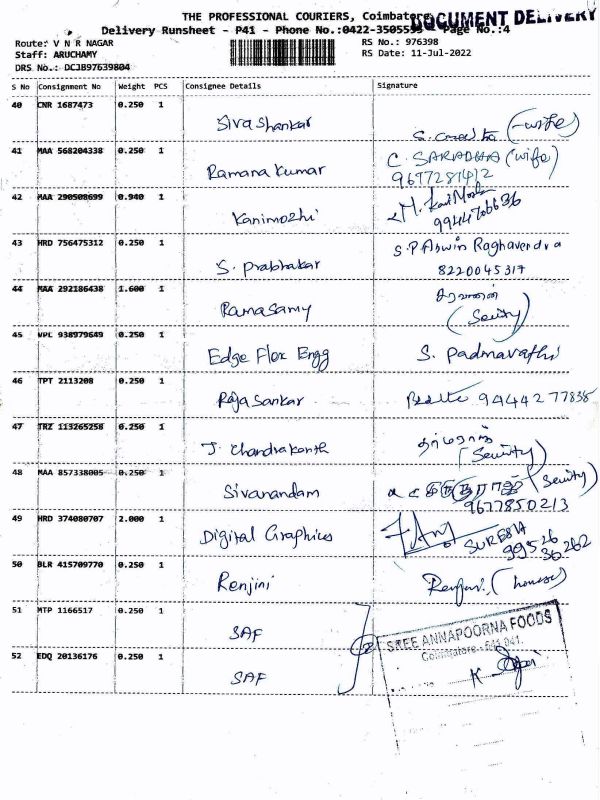 THE PROFESSIONAL COURIERS, Coimbatore
DOCUMENT DELIVERY
Delivery Runsheet - P41 - Phone No.:0422-3505551 Page No.:4
Route: V N R NAGAR
RS No.: 976398
Staff: ARUCHAMY
RS Date: 11-Jul-2022
DRS No.: DCJB97639804
S No Consignment No Weight PCS Consignee Details Signature
40 CNR 1687473 0.250 1
Sivashankar (-wife)
41 MAA 568204338 0.250 1
Ramana Kumar C. SARADHA (wife)
9677287412
42 MAA 290508699 0.940 1
Kanimozhi
9944706636
43 HRD 756475312 0.250 1
S. Prabhakar S.P Ashwin Raghavendra
8220045317
44 MAA 292186438 1.600 1
Ramasamy சரவணன்
(Security)
45 VPL 938979649 0.250 1
Edge Flex Engg S. Padmavathi
46 TPT 2113208 0.250 1
Raja Sankar 9444277838
47 TRZ 113265258 0.250 1
J. Chandrakanth (Security)
48 MAA 857338005 0.250 1
Sivanandam (Security)
9677850213
49 HRD 374080707 2.000 1
Digital Graphics SURESH
99526
36262
50 BLR 415709770 0.250 1
Renjini Renjini. (house)
51 MTP 1166517 0.250 1
SAF
SREE ANNAPOORNA FOODS
Coimbatore - 641 041.
52 EDQ 20136176 0.250 1
SAF K